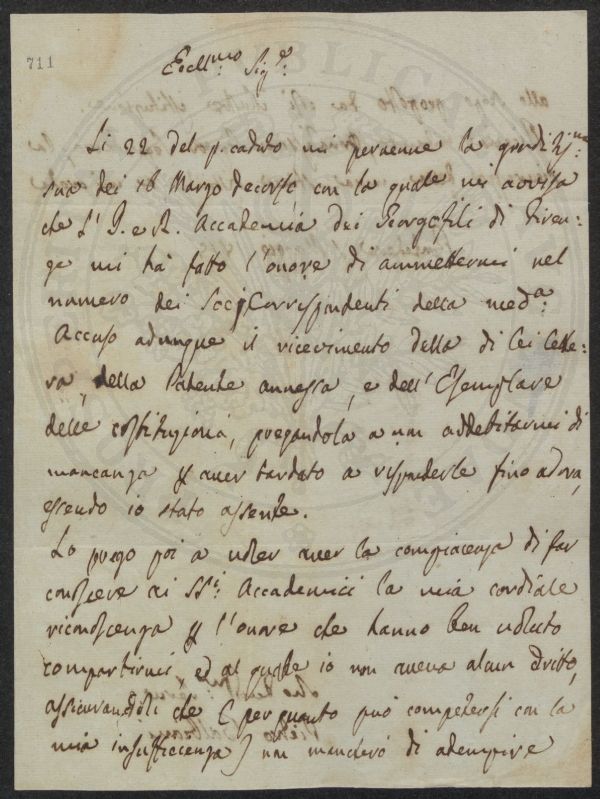 711
Eccll:mo Sig:e
Li 22 del p. caduto mi pervenne la graditis:ma
sua dei 18 Marzo decorso, con la quale mi avvisa
che l'I. e R. Accademia dei Georgofili di Firen:
ze mi há fatto l'onore di ammettermi nel
numero dei Socj Corrispondenti della med:a
Accuso adunque il ricevimento della di lei lette:
ra, della Patente annessa, e dell'Esemplare
delle costituzioni, pregandola a non addebitarmi di
mancanza p aver tardato a risponderle fino adora,
essendo io stato assente.
La prego poi a voler aver la compiacenza di far
conoscere ai SS:i Accademici la mia cordiale
riconoscenza p l'onore che hanno ben voluto
compartirmi, ed al quale io non aveva alcun dritto,
assicurandoli che (per quanto può competersi con la
mia insufficcenza) non mancheró di adempire